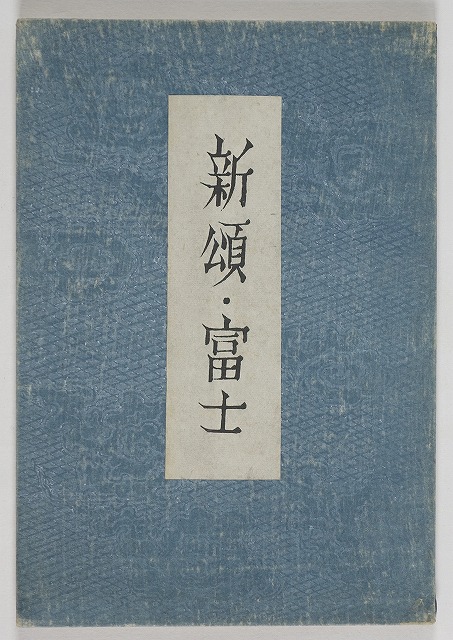 新頌・富士